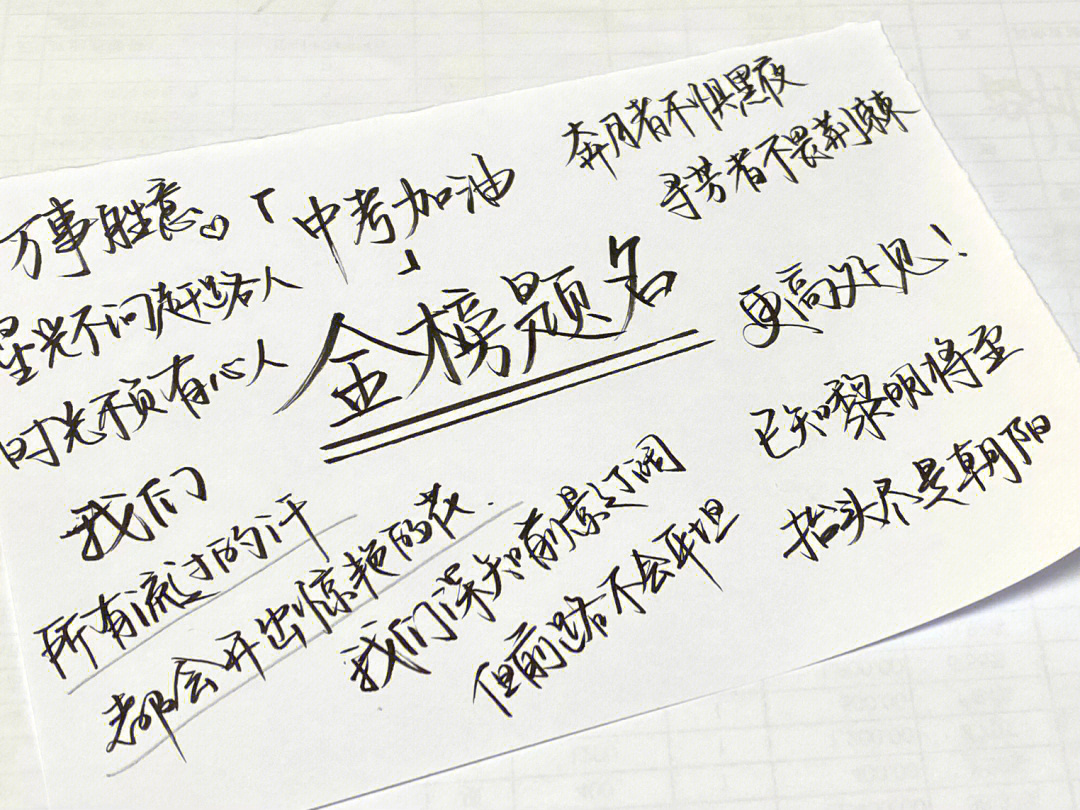 奔月者不惧黑夜
寻芳者不畏荆棘
万事胜意
「中考加油」
星光不问赶路人
时光不负有心人
金榜题名
更高处见！
我们
所有流过的汗
都会开出惊艳的花.
我们深知前景辽阔
但前路不会平坦
已知黎明将至
抬头尽是朝阳